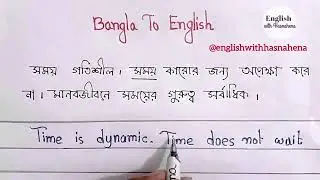 Bangla To English
English
with Hasnahena
@englishwithhasnahena
সময় গতিশীল। সময় কারোর জন্য অপেক্ষা করে
না। মানবজীবনে সময়ের গুরুত্ব সর্বাধিক।
Time is dynamic. Time does not wait